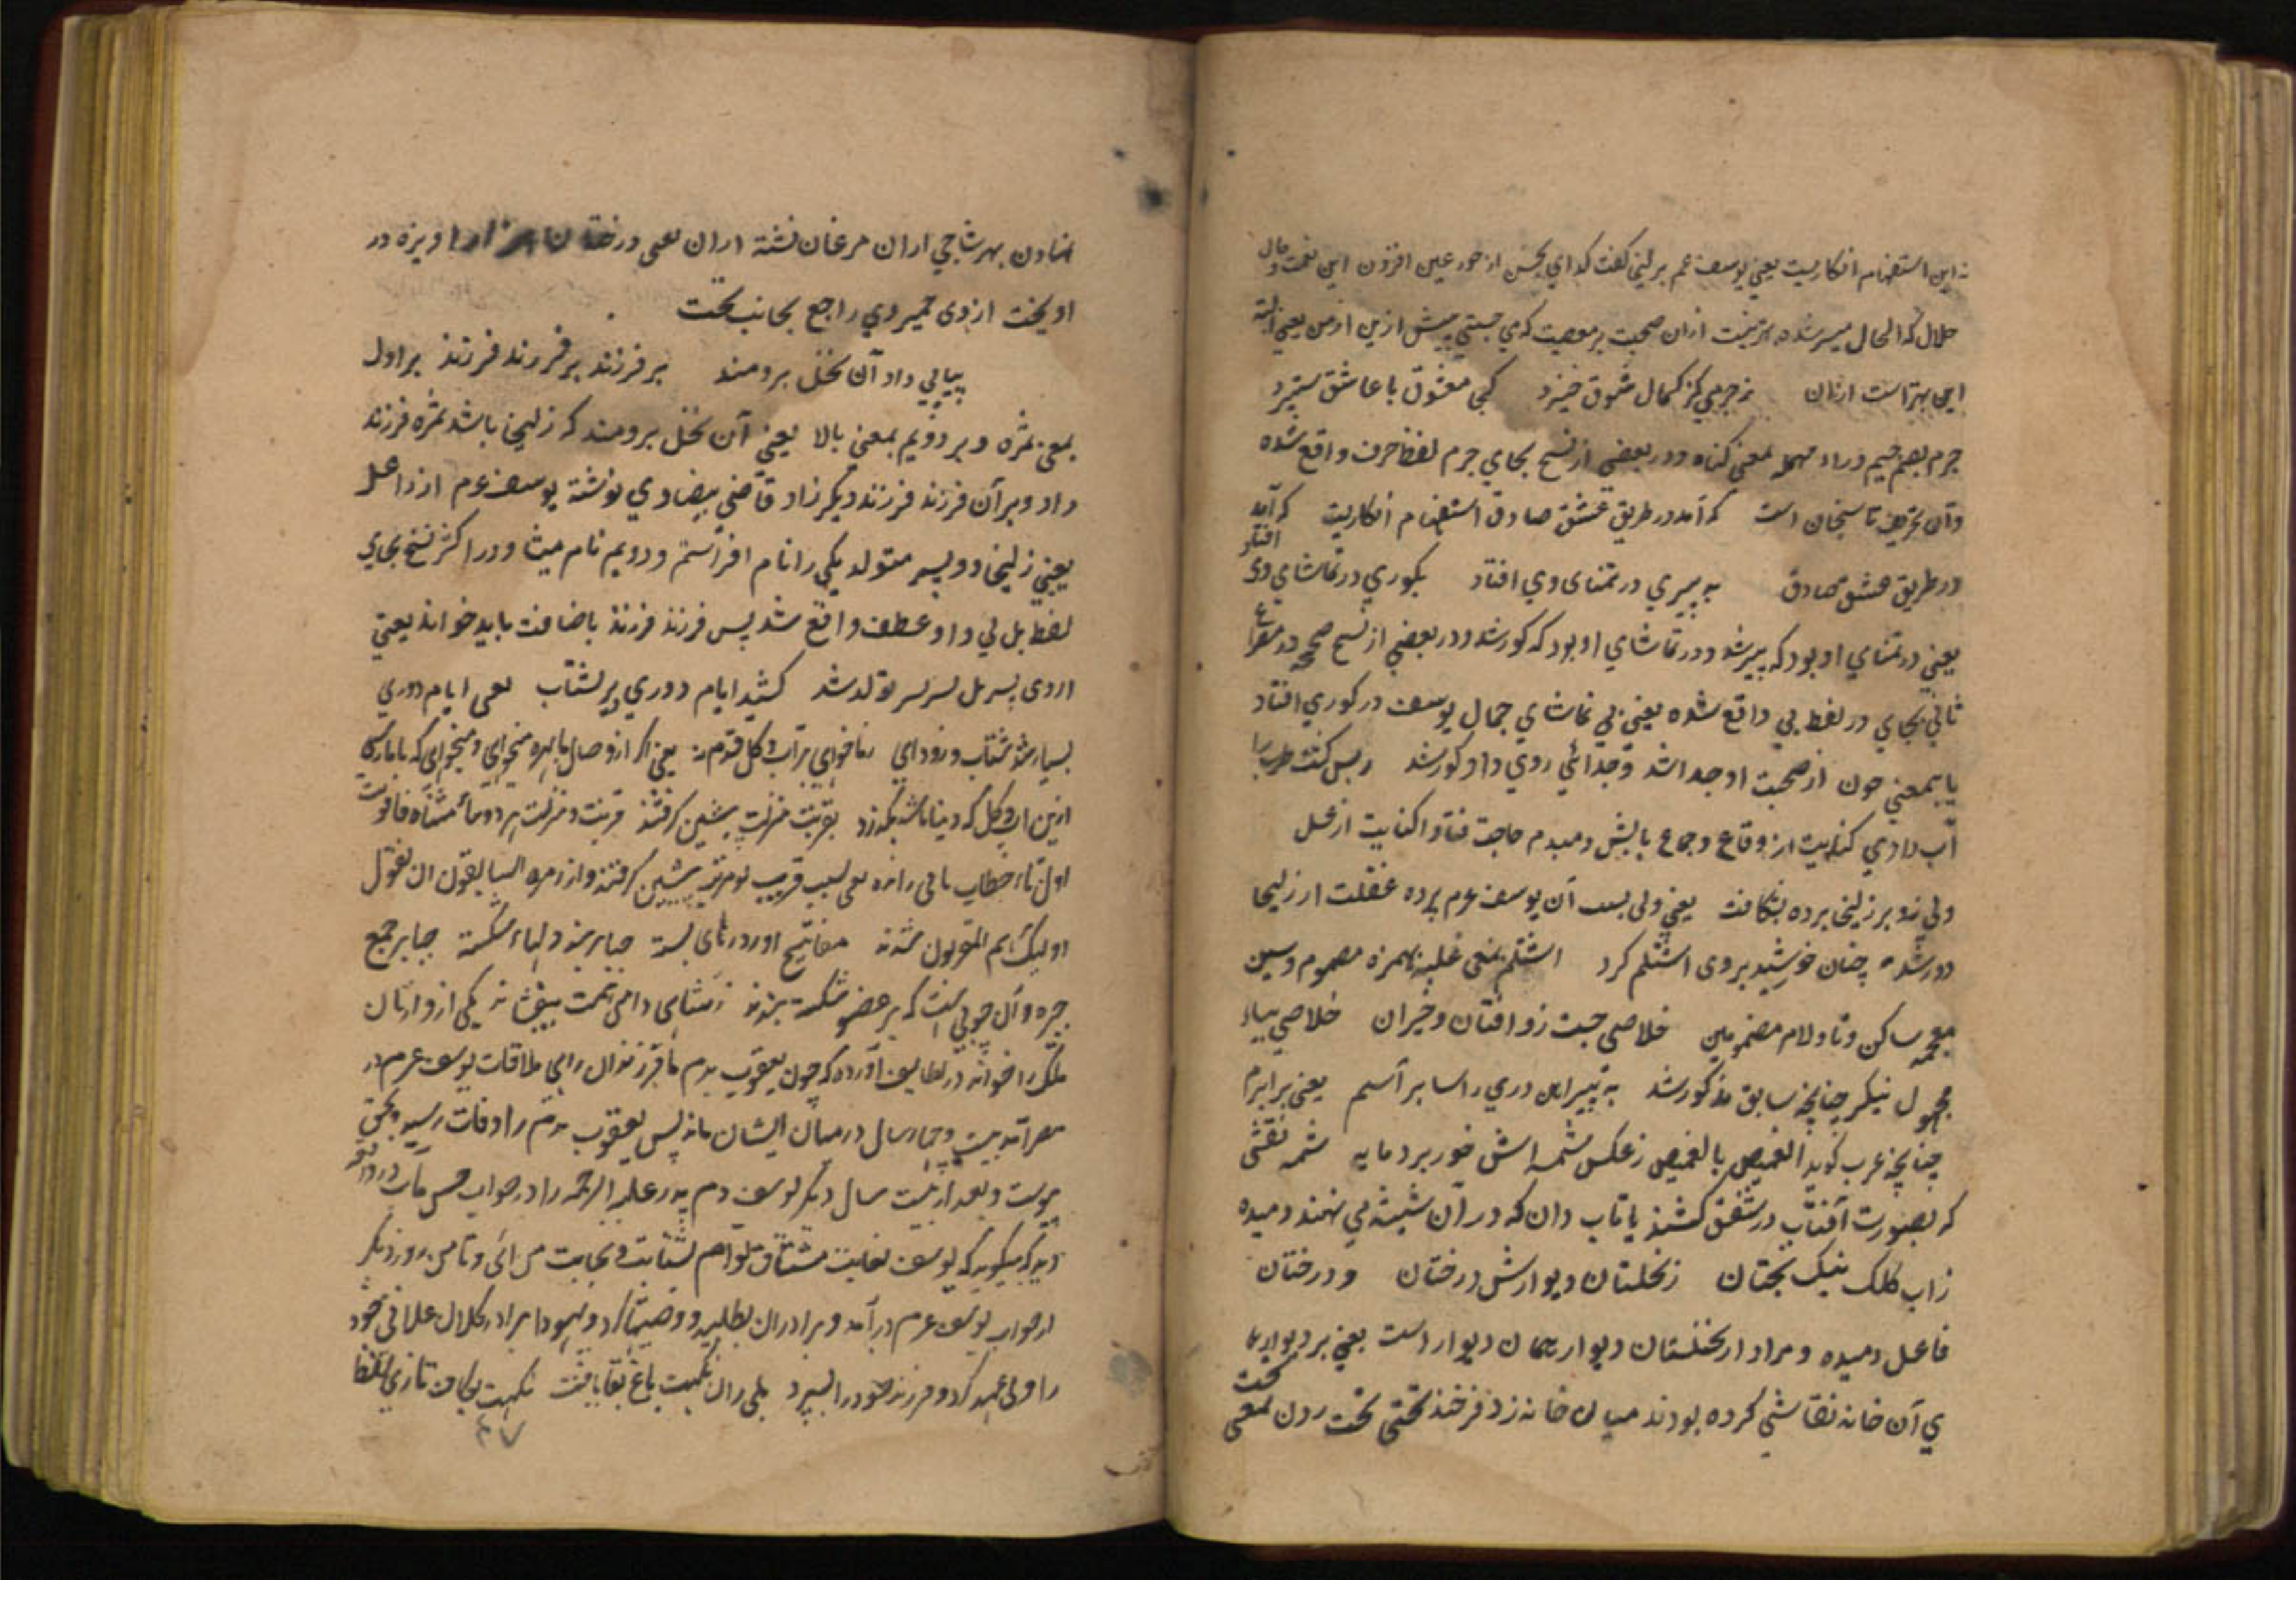 نه این استفهام انکاریست یعنی یوسف عم بزلیخا گفت که ای بحسن از حور عین افزون این نعمت وصال
حلال که الحال میسر شده بهتر نیست ازان صحبت پر معصیت که می جستی پیش ازین از من یعنی البته
این بهتر است ازان ز جرمی کز کمال شوق خیزد کجی معشوق با عاشق ستیزد
جرم بضم جیم و راء مهمله بمعنی کناه و در بعضی از نسخ بجای جرم لفظ حرف واقع شده
وآن تحریف ناسخان است که آمد در طریق عشق صادق استفهام انکاریست که آمد
در طریق عشق صادق به پیری در تمنای وی افتاد بکوری در تماشای وی افتاد
یعنی در تمنای او بود که پیر شد و در تماشای او بود که کور شد و در بعضی از نسخ صحیحه در مصراع
ثانی بجای در لفظ بی واقع شده یعنی بی تماشای جمال یوسف در کوری افتاد
یا بمعنی چون از صحبت او جدا شد و جدائی روی داد کور شد
آب دادی کنایت از وقاع و جماع بالبش دمبدم حاجت فتاد کنایت از غسل
ولی زو بر زلیخا پرده بشکافت یعنی ولی بسبب آن یوسف عم پرده غفلت از زلیخا
دور شد چنان خورشید بر وی اشتلم کرد اشتلم بمعنی غلبه بهمزه مضموم و سین
معجمه ساکن و تا و لام مضمومین خلاصی جست زو افتان و خیزان خلاصی بیاء
مجهول نیکر چنانچه سابق مذکور شد به پیراهن دری راسا براسم یعنی برابرم
چنانچه عرب کوید القمیص بالقمیص ز عکس شمسه اش خور برد مایه شمسه نقشی
که بصورت آفتاب در سقف کشند یا تاب دان که در آن شیشه می نهند دمیده
زاب کلک نیک بختان ز نخلستان دیوارش درختان و درختان
فاعل دمیده و مراد از نخلستان دیوار همان دیوار است یعنی بر دیوارها
ی آن خانه نقاشی کرده بودند میان خانه زد فرخنده تختی تخت زدن بمعنی تخت
نهادن بهر شاخی ازان مرغان نشسته ازان یعنی درختان اویزه در
اویخت از وی ضمیر وی راجع بجانب تخت
پیاپی داد آن نخل برومند بر فرزند بر فرزند فرزند بر اول
بمعنی ثمره و بر دویم بمعنی بالا یعنی آن نخل برومند که زلیخا باشد ثمره فرزند
داد و بر آن فرزند فرزند دیکر زاد قاضی بیضاوی نوشته یوسف عم از راعیل
یعنی زلیخا دو پسر متولد یکی را نام افراسیم و دویم نام میشا و در اکثر نسخ بجای
لفظ بل بی واو عطف واقع شد پس فرزند فرزند باضافت باید خواند یعنی
از وی پسر بل پسر پسر تولد شد کشید ایام دوری دیر بشتاب یعنی ایام دوری
بسیار شد بشتاب و زود ای یعنی اگر از وصال ما بهره میخواهی
ازین آب و کل که دنیا باشد بکذر بقربت منزلت پیشین کرفتند
اول تاء خطاب یعنی بسبب قریب تو مرتبه پیشین کرفتند و از زمره السابقون
اولیک هم المقربون شدند مفاتیح اور درهای بسته جبایر بند دلهاء شکسته جبایر جمع
جبره و آن چوبی است که بر عضو شکسته بندند ز شاهی دامن همت بیفشاند یکی از وارثان
ملک را خواند در لطایف آورده که چون یعقوب عم با فرزندان برای ملاقات یوسف عم در
مصر آمد بیست و چهار سال در میان ایشان ماند پس یعقوب عم را وفات رسید و بحق
پیوست و بعد از بیست سال دیکر یوسف عم پدر علیه الرحمه را در خواب
دید که میکوید که یوسف بغایت مشتاق توام بشتاب و بجانب من ای و تا من روز دیکر
از خواب یوسف عم در آمد و برادران بطلبید و وصیتها کرد و یهودا برادر کلان علاتی خود
را ولی عهد کرد و فرزند خود را سپرد بلی زان نکهت باغ بقا یافت نکهت بکاف تازی لفظا